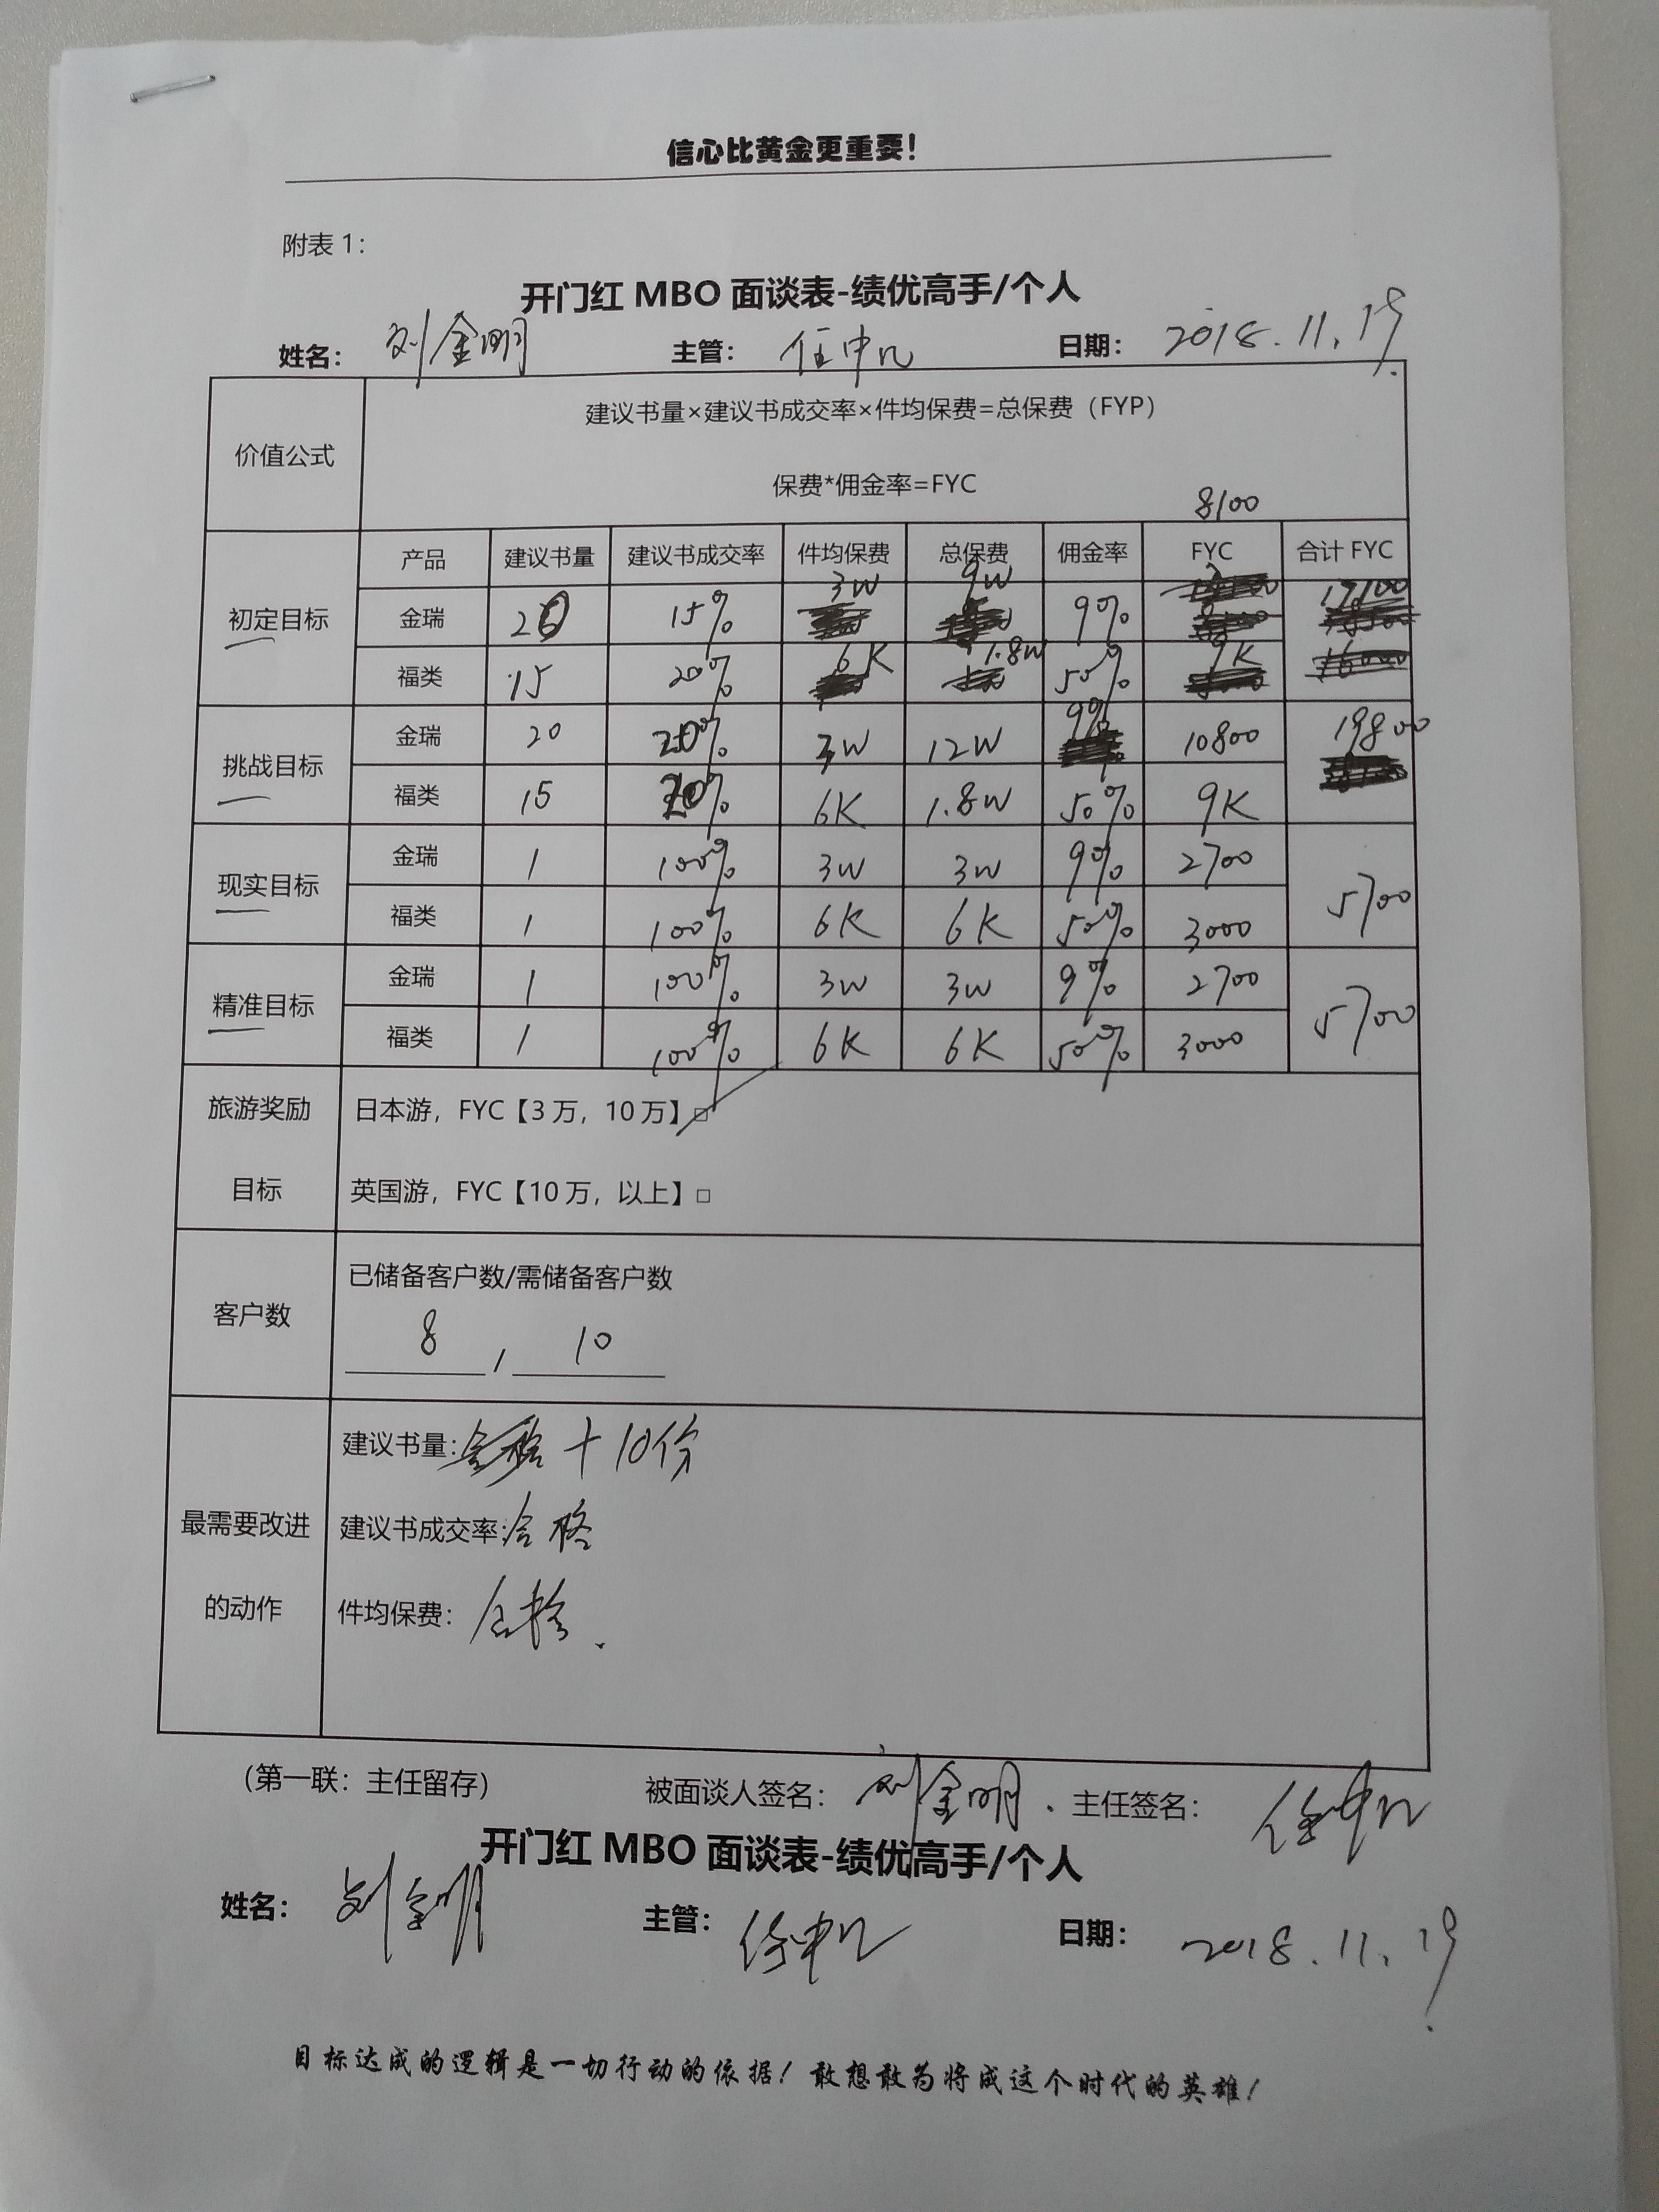 信心比黄金更重要!
附表1:
开门红 MBO 面谈表-绩优高手/个人
姓名: 刘金明 主管: 任中 日期: 2018.11.19
价值公式
建议书量×建议书成交率×件均保费=总保费（FYP）
保费*佣金率=FYC
8100
产品 建议书量 建议书成交率 件均保费 总保费 佣金率 FYC 合计 FYC
初定目标
金瑞 20 15% 3W 9W 9% 17100
福类 15 20% 6K 1.8W 50% 9K
挑战目标
金瑞 20 20% 3W 12W 9% 10800 19800
福类 15 20% 6K 1.8W 50% 9K
现实目标
金瑞 1 100% 3W 3W 9% 2700 5700
福类 1 100% 6K 6K 50% 3000
精准目标
金瑞 1 100% 3W 3W 9% 2700 5700
福类 1 100% 6K 6K 50% 3000
旅游奖励
目标
日本游，FYC【3万，10万】□
英国游，FYC【10万，以上】□
客户数
已储备客户数/需储备客户数
8 / 10
最需要改进
的动作
建议书量: +10份
建议书成交率: 合格
件均保费: 合格.
(第一联: 主任留存) 被面谈人签名: 刘金明. 主任签名: 任中
开门红 MBO 面谈表-绩优高手/个人
姓名: 刘金明 主管: 任中 日期: 2018.11.19
目标达成的逻辑是一切行动的依据! 敢想敢为将成这个时代的英雄!